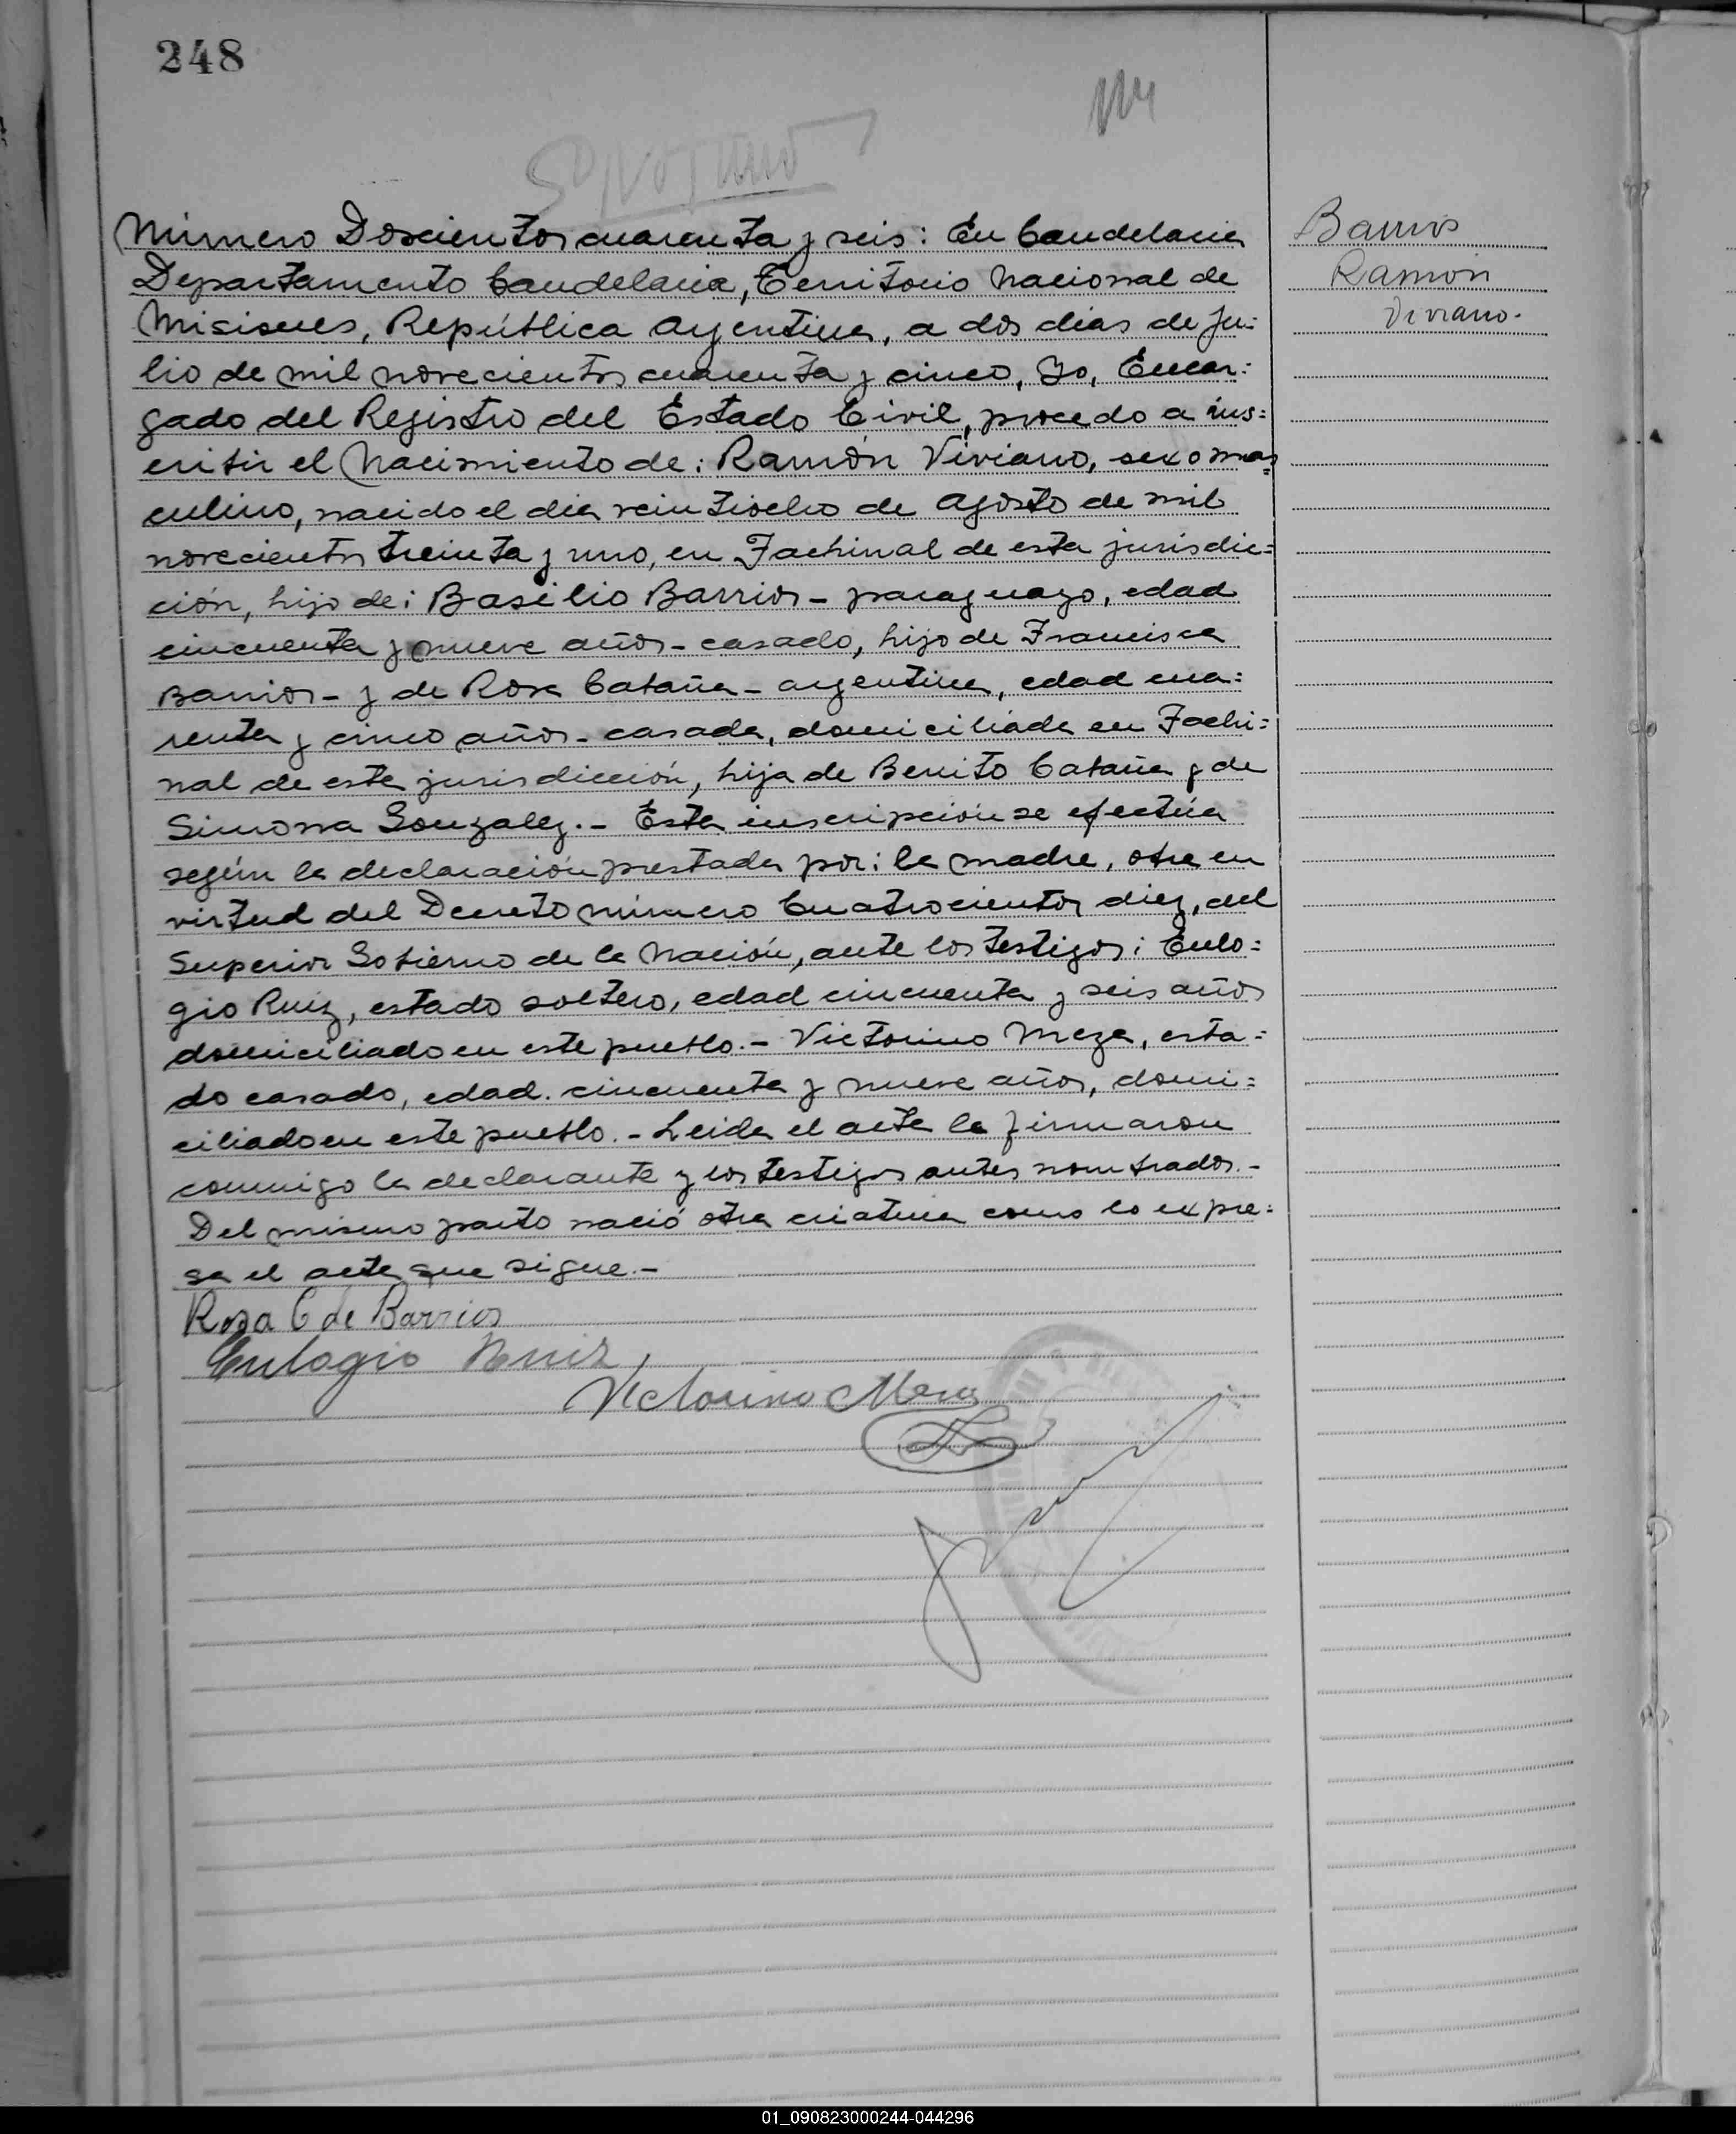 248
Número Doscientos cuarenta y seis: En Candelaria
Departamento Candelaria, Territorio Nacional de
Misiones, República Argentina, a dos dias de Ju=
lio de mil novecientos cuarenta y cinco, Yo, Encar=
gado del Registro del Estado Civil, procedo a ins=
cribir el Nacimiento de: Ramón Viviano, sexo mas=
culino, nacido el dia veintiocho de Agosto de mil
novecientos treinta y uno, en Fachinal de esta jurisdic=
ción, hijo de: Basilio Barrios - paraguayo, edad
cincuenta y nueve años - casado, hijo de Francisca
Barrios - y de Rosa Cabaña - argentina, edad cua=
renta y cinco años - casada, domiciliada en Fachi=
nal de esta jurisdicción, hija de Benito Cabaña y de
Simona Gonzalez. - Esta inscripción se efectúa
según la declaración prestada por: la madre, otra en
virtud del Decreto número Cuatrocientos diez, del
Superior Gobierno de la Nación, ante los testigos: Eulo=
gio Ruiz, estado soltero, edad cincuenta y seis años
domiciliado en este pueblo. - Victorino Meza, esta=
do casado, edad. cincuenta y nueve años, domi=
ciliado en este pueblo. - Leida el acta la firmaron
conmigo la declarante y los testigos antes nombrados. -
Del mismo parto nació otra criatura como lo expre=
sa el acta que sigue. -
Rosa C de Barrios
Eulogio Ruiz
Victorino Meza
Barrios
Ramón
Viviano.
01_090823000244-044296